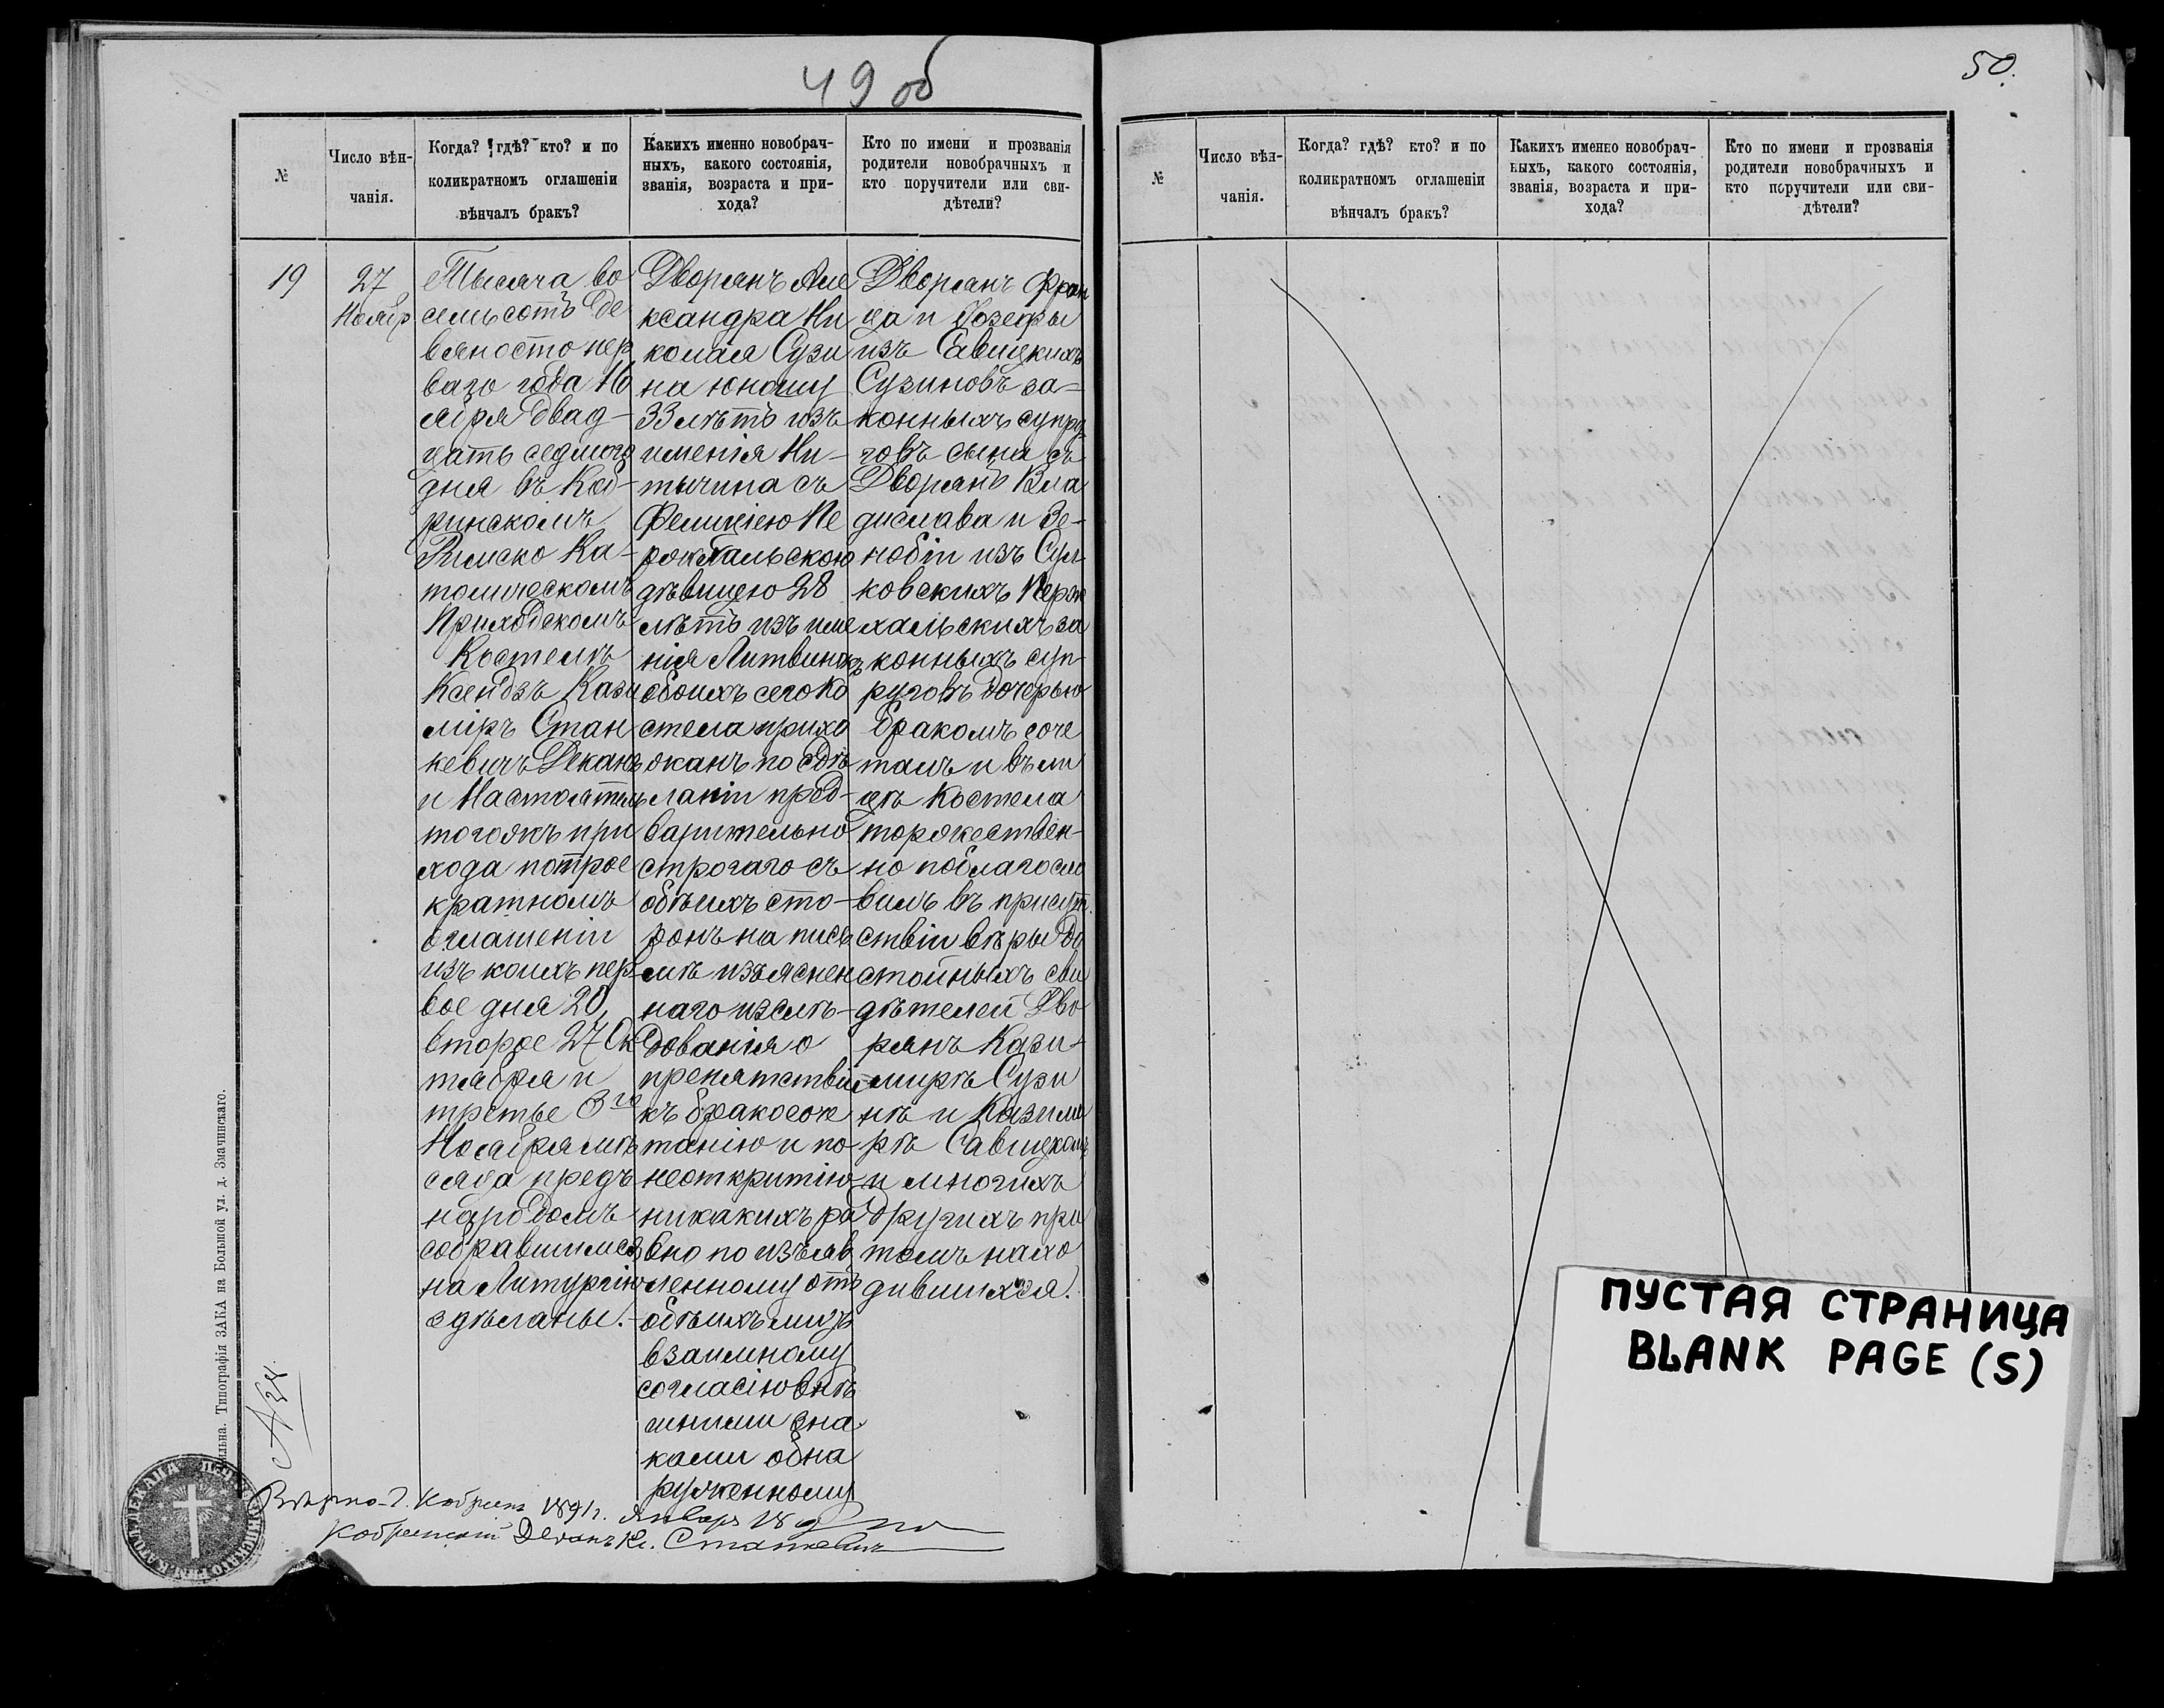 49 об
№
Число вѣн-
чанія.
Когда? гдѣ? кто? и по
коликратномъ оглашеніи
вѣнчалъ бракъ?
Какихъ именно новобрач-
ныхъ, какого состоянія,
званія, возраста и при-
хода?
Кто по имени и прозванія
родители новобрачныхъ и
кто поручители или сви-
дѣтели?
19
27
Ноябр
Тысяча во
семьсотъ де
вяносто пер
ваго года Но
ября двад-
цать седмого
дня въ Коб-
ринскомъ
Римско Ка-
толическомъ
Приходскомъ
Костелѣ
Ксендзъ Кази
міръ Стан
кевичъ Деканъ
и Настоятель
тогожъ при
хода по трое
кратномъ
оглашеніи
изъ коихъ пер
вое дня 20,
второе 27 Ок
тября и
третье 3го
Ноября мѣ
сяца предъ
народомъ
собравшимся
на Литургію
здѣланы.
Дворянъ Але
ксандра Ни
колая Сузи
на юношу
33 лѣтъ изъ
именія Ни-
тычина съ
Фелиціею Пе
рожхальскою
дѣвицею 28
лѣтъ изъ име
нія Литвинки
обоихъ сего Ко
стела прихо
жанъ по здѣ
ланіи пред-
варительно
строгаго съ
обѣихъ сто-
ронъ на пись
мѣ изъяснен
наго изслѣ-
дованія о
препятствіи
къ бракосоче
танію и по
неоткритію
никакихъ ра
вно по изъяв
ленному отъ
обѣихъ лицъ
взаимному
согласію внѣ
шними зна
ками обна
руженному
Дворянъ Фран
ца и Іозефы
изъ Савицкихъ
Сузиновъ за-
конныхъ супру
говъ сына съ
Дворянъ Вла
дислава и Зе-
нобіи изъ Сул-
ковскихъ Перж
хальскихъ за
конныхъ суп-
руговъ дочерью
бракомъ соче
талъ и въ ли
цѣ Костела
торжествен-
но поблагосло
вилъ въ присут
ствіи вѣры до
стойныхъ сви
дѣтелей Дво
рянъ Кази-
мирѣ Сузи
нѣ и Казими
рѣ Савицкомъ
и многихъ
другихъ при
томъ нахо
дившихся.
Вѣрно г. Кобринъ 1891 г. Января 18 дня
Кобринскій Деканъ Кс. Станкевичъ
Вильна. Типографія ЗАКА на Большой ул. д. Значинскаго.
50.
№
Число вѣн-
чанія.
Когда? гдѣ? кто? и по
коликратномъ оглашеніи
вѣнчалъ бракъ?
Какихъ именно новобрач-
ныхъ, какого состоянія,
званія, возраста и при-
хода?
Кто по имени и прозванія
родители новобрачныхъ и
кто поручители или сви-
дѣтели?
ПУСТАЯ СТРАНИЦА
BLANK PAGE (S)